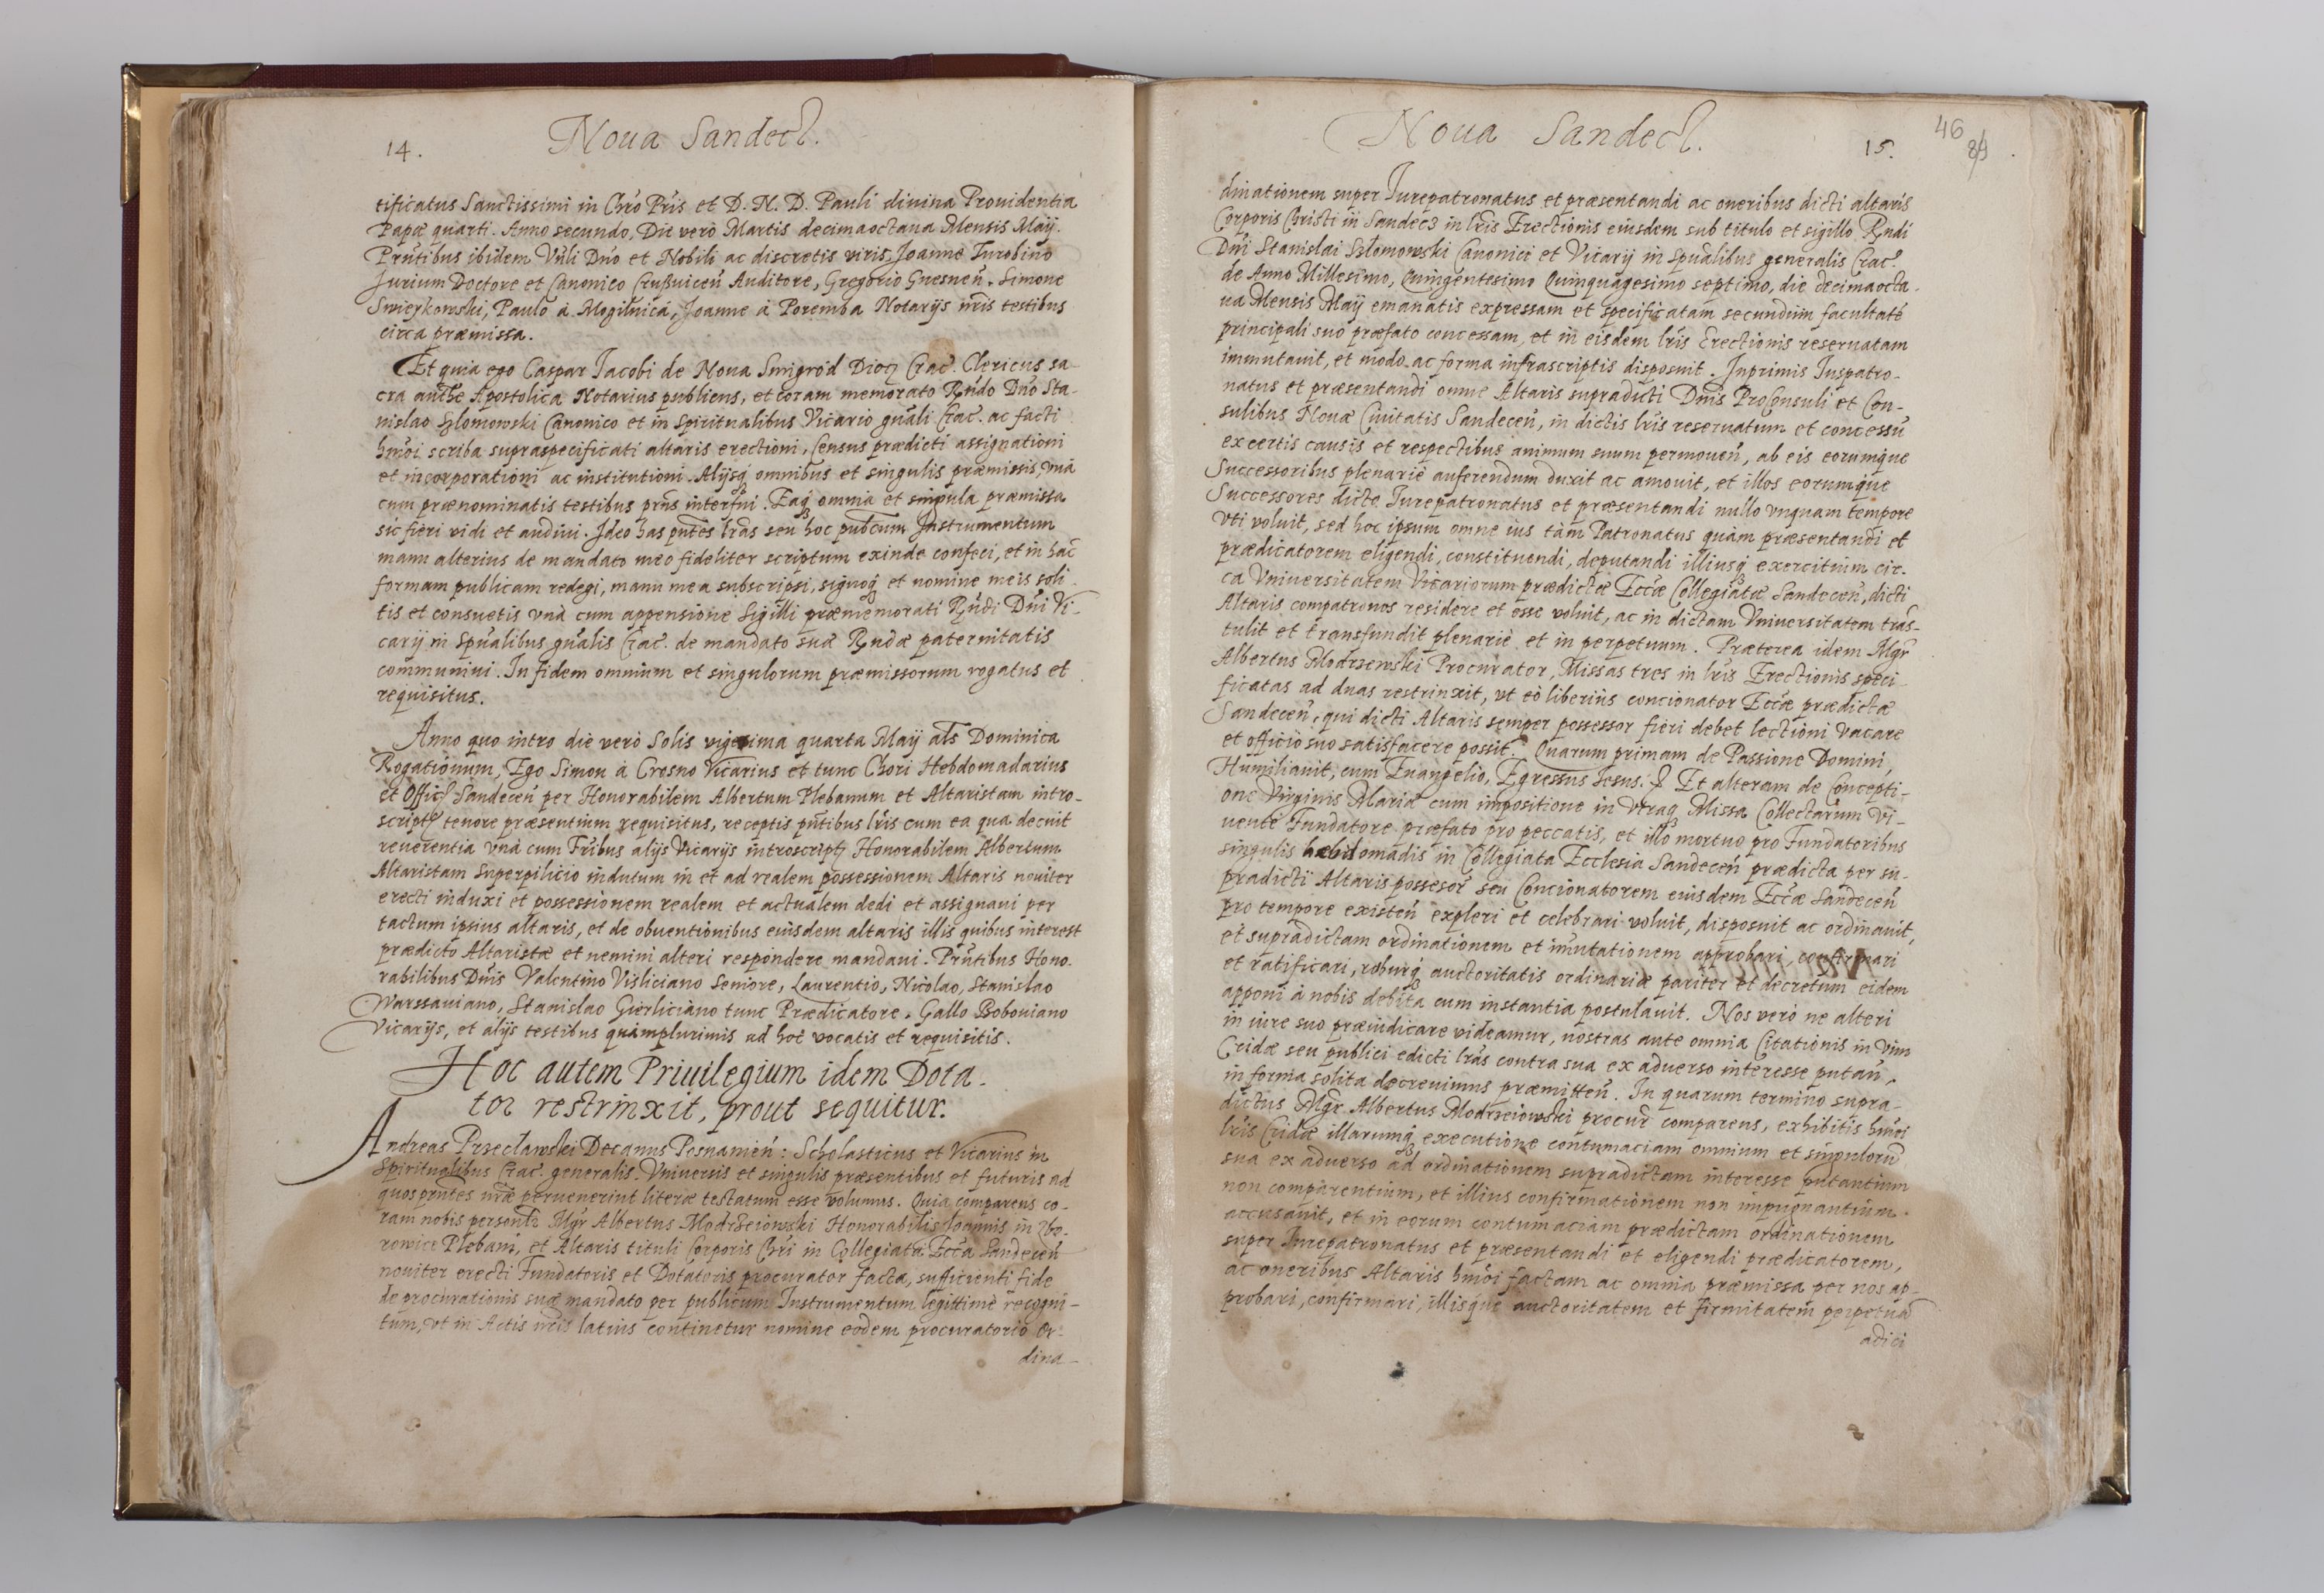 14.
Noua Sandecz.
tificatus Sanctissimi in Chro Pris et D. N. D. Pauli diuina Prouidentia
Papæ quarti. Anno secundo, Die verò Martis decimaoctaua Mensis Maij.
Prntibus ibidem Vnli Dno et Nobili ac discretis viris, Joanne Turobino
Jurium Doctore et Canonico Crußuicen Auditore, Gregorio Gnesnen. Simone
Smieykowski, Paulo à Mogilnica, Joanne à Poremba Notarijs nris testibus
circa præmissa.
Et quia ego Caspar Jacobi de Noua Smigrod Dioc Crac. Clericus sa-
cra authe Apostolica Notarius publicus, et coram memorato Rndo Dno Sta-
nislao Szlomowski Canonico et in Spiritualibus Vicario gnali Crac. ac facti
hmoi scriba supraspecificati altaris erectioni, Census prædicti assignationi
et incorporationi ac institutioni. Alijsq omnibus et singulis præmissis, vnà
cum prænominatis testibus prns interfui. Eaq omnia et singula præmissa
sic fieri vidi et audiui. Ideo has pntes lras seu hoc publcum Instrumentum
manu alterius de mandato meo fideliter scriptum exinde confeci, et in hac
formam publicam redegi, manu mea subscripsi, signoq et nomine meis soli-
tis et consuetis vnà cum appensione Sigilli præmemorati Rndi Dni Vi-
carij in Spualibus gnalis Crac. de mandato suæ Rndæ paternitatis
communiui. In fidem omnium et singulorum præmissorum rogatus et
requisitus.
Anno quo intro die verò Solis vigesima quarta Maij als Dominica
Rogationum, Ego Simon à Crosno Vicarius et tunc Chori Hebdomadarius
et Offic Sandecen per Honorabilem Albertum Plebanum et Altaristam intro-
script tenore præsentium requisitus, receptis pntibus lris cum ea qua decuit
reuerentia vnà cum Fribus alijs Vicarijs introscript Honorabilem Albertum
Altaristam Superpilicio indutum in et ad realem possessionem Altaris nouiter
erecti induxi et possessionem realem et actualem dedi et assignaui per
tactum ipsius altaris, et de obuentionibus eiusdem altaris illis quibus interest
prædicto Altaristæ et nemini alteri respondere mandaui. Prntibus Hono-
rabilibus Dnis Valentino Visliciano Seniore, Laurentio, Nicolao, Stanislao
Warssauiano, Stanislao Gierliciano tunc Prædicatore, Gallo Bobouiano
Vicarijs, et alijs testibus quàmplurimis ad hoc vocatis et requisitis.
Hoc autem Priuilegium idem Dota-
tor restrinxit, prout sequitur.
Andreas Przecławski Decanus Posnanien: Scholasticus et Vicarius in
Spiritualibus Crac. generalis. Vniuersis et singulis præsentibus et futuris ad
quos prntes nræ peruenerint literæ testatum esse volumus. Quia comparens co-
ram nobis personlr Mgr Albertus Modrzeiowski Honorabilis Joannis in Zbo-
rowice Plebani, et Altaris tituli Corporis Chri in Collegiata Ecca Sandecen
nouiter erecti Fundatoris et Dotatoris procurator facta, sufficienti fide
de procurationis suæ mandato per publicum Instrumentum legittimè recogni-
tum, vt in Actis nris latius continetur nomine eodem procuratorio Or-
dina-
Noua Sandecz.
15.
46
89
dinationem super Jurepatronatus et præsentandi ac oneribus dicti altaris
Corporis Christi in Sandecz in lris Erectionis eiusdem sub titulo et sigillo Rndi
Dni Stanislai Szlomowski Canonici et Vicarij in Spualibus generalis Crac.
de Anno Millesimo, Quingentesimo Quinquagesimo septimo, die decimaocta-
ua Mensis Maij emanatis expressam et specificatam secundum facultatē
principali suo præfato concessam, et in eisdem lris Erectionis reseruatam
immutauit, et modo ac forma infrascriptis disposuit. Inprimis Juspatro-
natus et præsentandi omne Altaris supradicti Dnis ProConsuli et Con-
sulibus Nouæ Ciuitatis Sandecen, in dictis lris reseruatum et concessū
ex certis causis et respectibus animum suum permouen, ab eis eorumque
Successoribus plenariè auferendum duxit ac amouit, et illos eorumque
Successores dicto Jurepatronatus et præsentandi nullo vnquam tempore
vti voluit, sed hoc ipsum omne ius tàm Patronatus quàm præsentandi et
prædicatorem eligendi, constituendi, deputandi illiusq exercitium cir-
ca Vniuersitatem Vicariorum prædictæ Eccæ Collegiatæ Sandecen, dicti
Altaris compatronos residere et esse voluit, ac in dictam Vniuersitatem tras-
tulit et transfundit plenariè et in perpetuum. Præterea idem Mgr
Albertus Modrzewski Procurator, Missas tres in lris Erectionis speci-
ficatas ad duas restrinxit, vt eò liberius concionator Eccæ prædictæ
Sandecen, qui dicti Altaris semper possessor fieri debet lectioni vacare
et officio suo satisfacere possit. Quarum primam de Passione Domini,
Humiliauit, cum Euangelio, Egressus Jesus. Et alteram de Concepti-
one Virginis Mariæ cum impositione in vtraq Missa Collectarum vi-
uente Fundatore præfato pro peccatis, et illo mortuo pro Fundatoribus
singulis hæbdomadis in Collegiata Ecclesia Sandecen prædicta per su-
pradicti Altaris possesor seu Concionatorem eiusdem Eccæ Sandecen
pro tempore existen expleri et celebrari voluit, disposuit ac ordinauit,
et supradictam ordinationem et imutationem approbari, confirmari
et ratificari, roburq auctoritatis ordinariæ pariter et decretum eidem
apponi à nobis debita cum instantia postulauit. Nos verò ne alteri
in iure suo præiudicare videamur, nostras ante omnia Citationis in vim
Cridæ seu publici edicti lras contra sua ex aduerso interesse putan,
in forma solita decreuimus præmitten. In quarum termino supra-
dictus Mgr Albertus Modrzeiowski procur comparens, exhibitis hmoi
lris Cridæ illarumq executione contumaciam omnium et singulorū
sua ex aduerso ad ordinationem supradictam interesse putantium
non comparentium, et illius confirmationem non impugnantium
accusauit, et in eorum contumaciam prædictam ordinationem
super Jurepatronatus et præsentandi et eligendi prædicatorem,
ac oneribus Altaris hmoi factam ac omnia præmissa per nos ap-
probari, confirmari, illisque auctoritatem et firmitatem perpetuā
adici